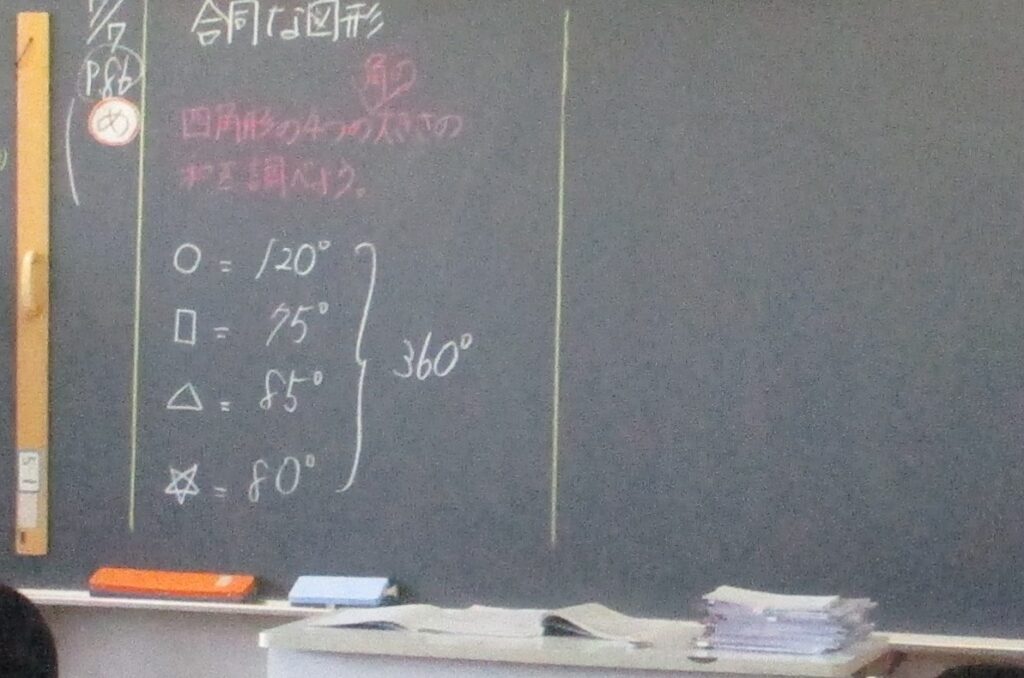 7/7
P.86
め
合同な図形
角の
四角形の4つの大きさの
和を調べよう。
○ = 120°
□ = 75°
△ = 85°
☆ = 80°
360°